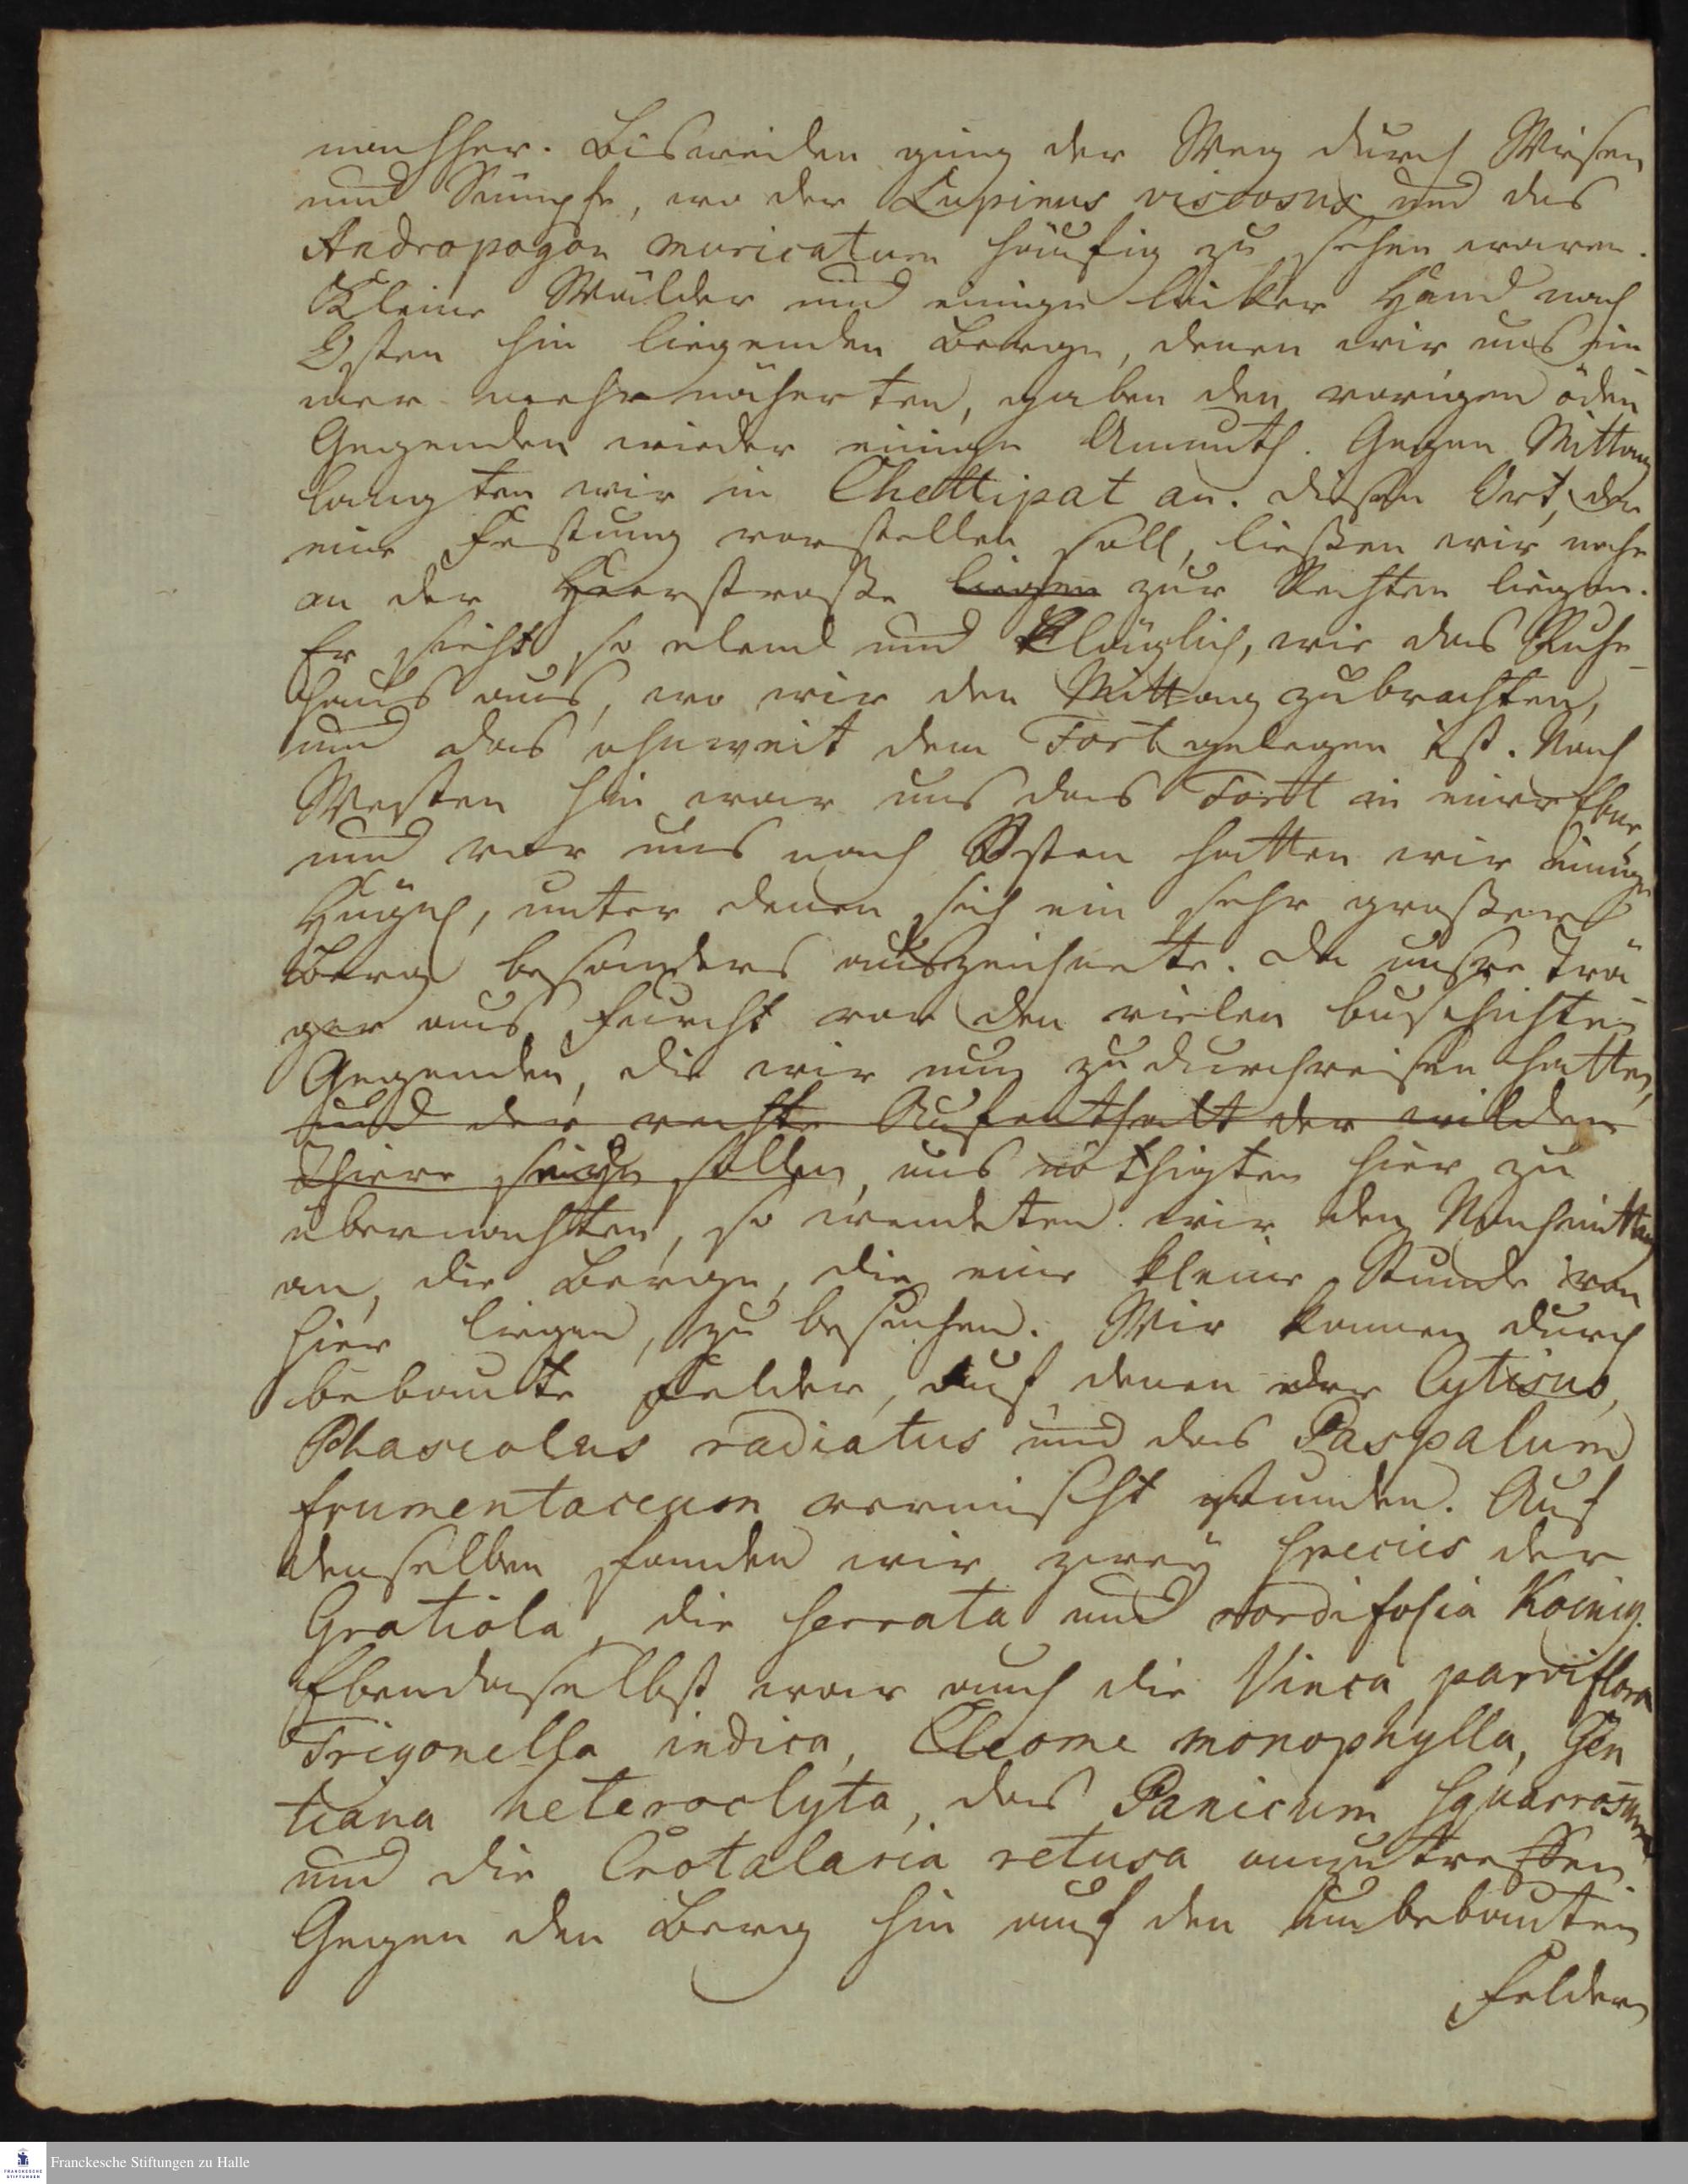 nachher. Bisweilen ging der Weg durch Wiesen
und Sümpfe, wo der Lupinus viscosus und das
Andropogon muricatum häufig zu sehen waren.
Kleine Wälder und einige linker Hand nach
Osten hin liegenden Berge, denen wir uns im
mer mehr näherten, gaben den vorigen öden
Gegenden wieder einige Anmuth. Gegen Mittag
langten wir in Chettipat an. Diesen Ort, der
eine Festung vorstellen soll, ließen wir nahe
an der Heerstraße liegen zur Rechten liegen.
Er sieht so elend und kläglich, wie das Ruhe-
haus aus, wo wir den Mittag zubrachten,
und das ohnweit dem Fort gelegen ist. Nach
Westen hin war uns das Fort in einer Ebne,
und vor uns nach Osten hatten wir einige
Hügel, unter denen sich ein sehr großer
Berg besonders auszeichnete. Da unsre Trä
ger aus Furcht vor den vielen buschichten
Gegenden, die wir nun zu durchreisen hatten,
und der rechte Aufenthalt der wilden
Thiere seyn sollen, uns nöthigten hier zu
übernachten, so wendeten wir den Nachmittag
an, die Berge, die eine kleine Stunde von
hier liegen, zu besuchen. Wir kamen durch
bebaute Felder, auf denen der Cytisus,
Phaseolus radiatus und das Paspalum
frumentaceum vermischt stunden. Auf
denselben fanden wir zwey Species der
Gratiola, die serrata und cordifolia Koenig.
Ebendaselbst war auch die Vinca parviflora
Trigonella indica, Cleome monophylla, Gen
tiana heteroclyta, das Panicum squarrosum
und die Crotalaria retusa anzutreffen.
Gegen den Berg hin auf den unbebauten
Feldern
Franckesche Stiftungen zu Halle
FRANCKESCHE
STIFTUNGEN